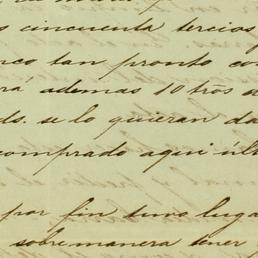 cincuenta tercios
tan pronto co
rá ademas 10 tros se
ds. se lo quieran da
comprado aqui últ
por fin tuvo luga
sobremanera tener